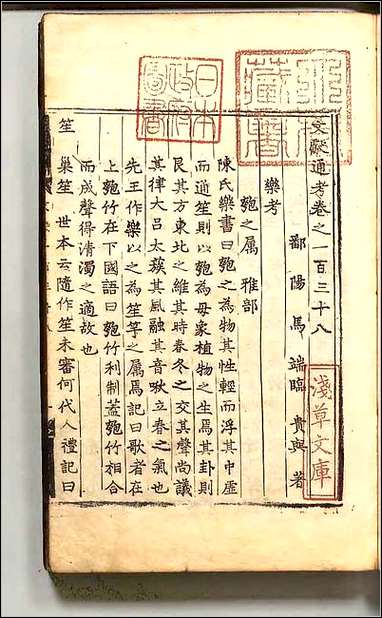 文獻通考卷之一百三十八
鄱陽馬 端臨 貴與 著
樂考
匏之属 雅部
陳氏樂書曰匏之為物其性輕而浮其中虛
而通笙則以匏為母象植物之生焉其卦則
艮其方東北之維其時春冬之交其聲尚議
其律大呂太簇其風融其音啾立春之氣也
先王作樂以之為笙竽之属焉記曰歌者在
上匏竹在下國語曰匏竹利制蓋匏竹相合
而成聲得清濁之適故也
笙 巢笙 世本云隨作笙未審何代人禮記曰
日本
政府
圖書
藏書
淺草文庫